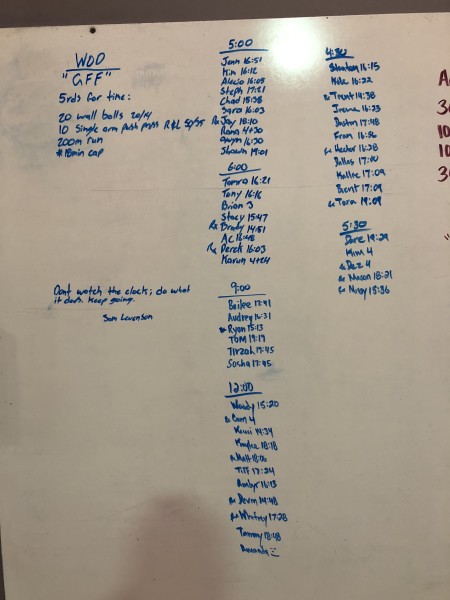 WOD
"GFF"
5rds for time:
20 wall balls 20/14
10 Single arm push press R&L 50/35
200m run
*18min cap
Dont watch the clock; do what
it does. Keep going.
Sam Levenson
5:00
Jenn 16:51
Kim 16:12
Alecia 16:05
Steph 17:21
Chad 15:38
Sara 16:03
Rx Jay 18:10
Rana 4+30
Gwyn 16:30
Shawn 19:01
6:00
Tamra 16:21
Tony 16:16
Brian 3
Stacy 15:47
Rx Brady 14:51
AC 16:48
Rx Derek 16:03
Karyn 4+24
9:00
Bailee 17:41
Audrey 16:31
Rx Ryan 15:13
TOM 19:19
Tirzah 17:45
Sasha 17:45
12:00
Woody 15:20
Rx Cam 4
14:34
Kaylee 18:18
Rx Matt
Tiff 17:24
16:13
Rx Devin 14:48
Rx Whitney 17:28
Tammy 18:48
Amanda
4:30
16:15
Mike 16:22
Rx Trent 14:38
Irene 16:23
Dustin 17:48
Fran
Rx Hector 16:28
Dallas
Hallee 17:09
Brent 17:09
Rx Tara 19:09
5:30
Dare 19:29
Kim 4
Rx Dez 4
Rx Mason 18:21
Rx 15:36
A
3
10
10
3
"